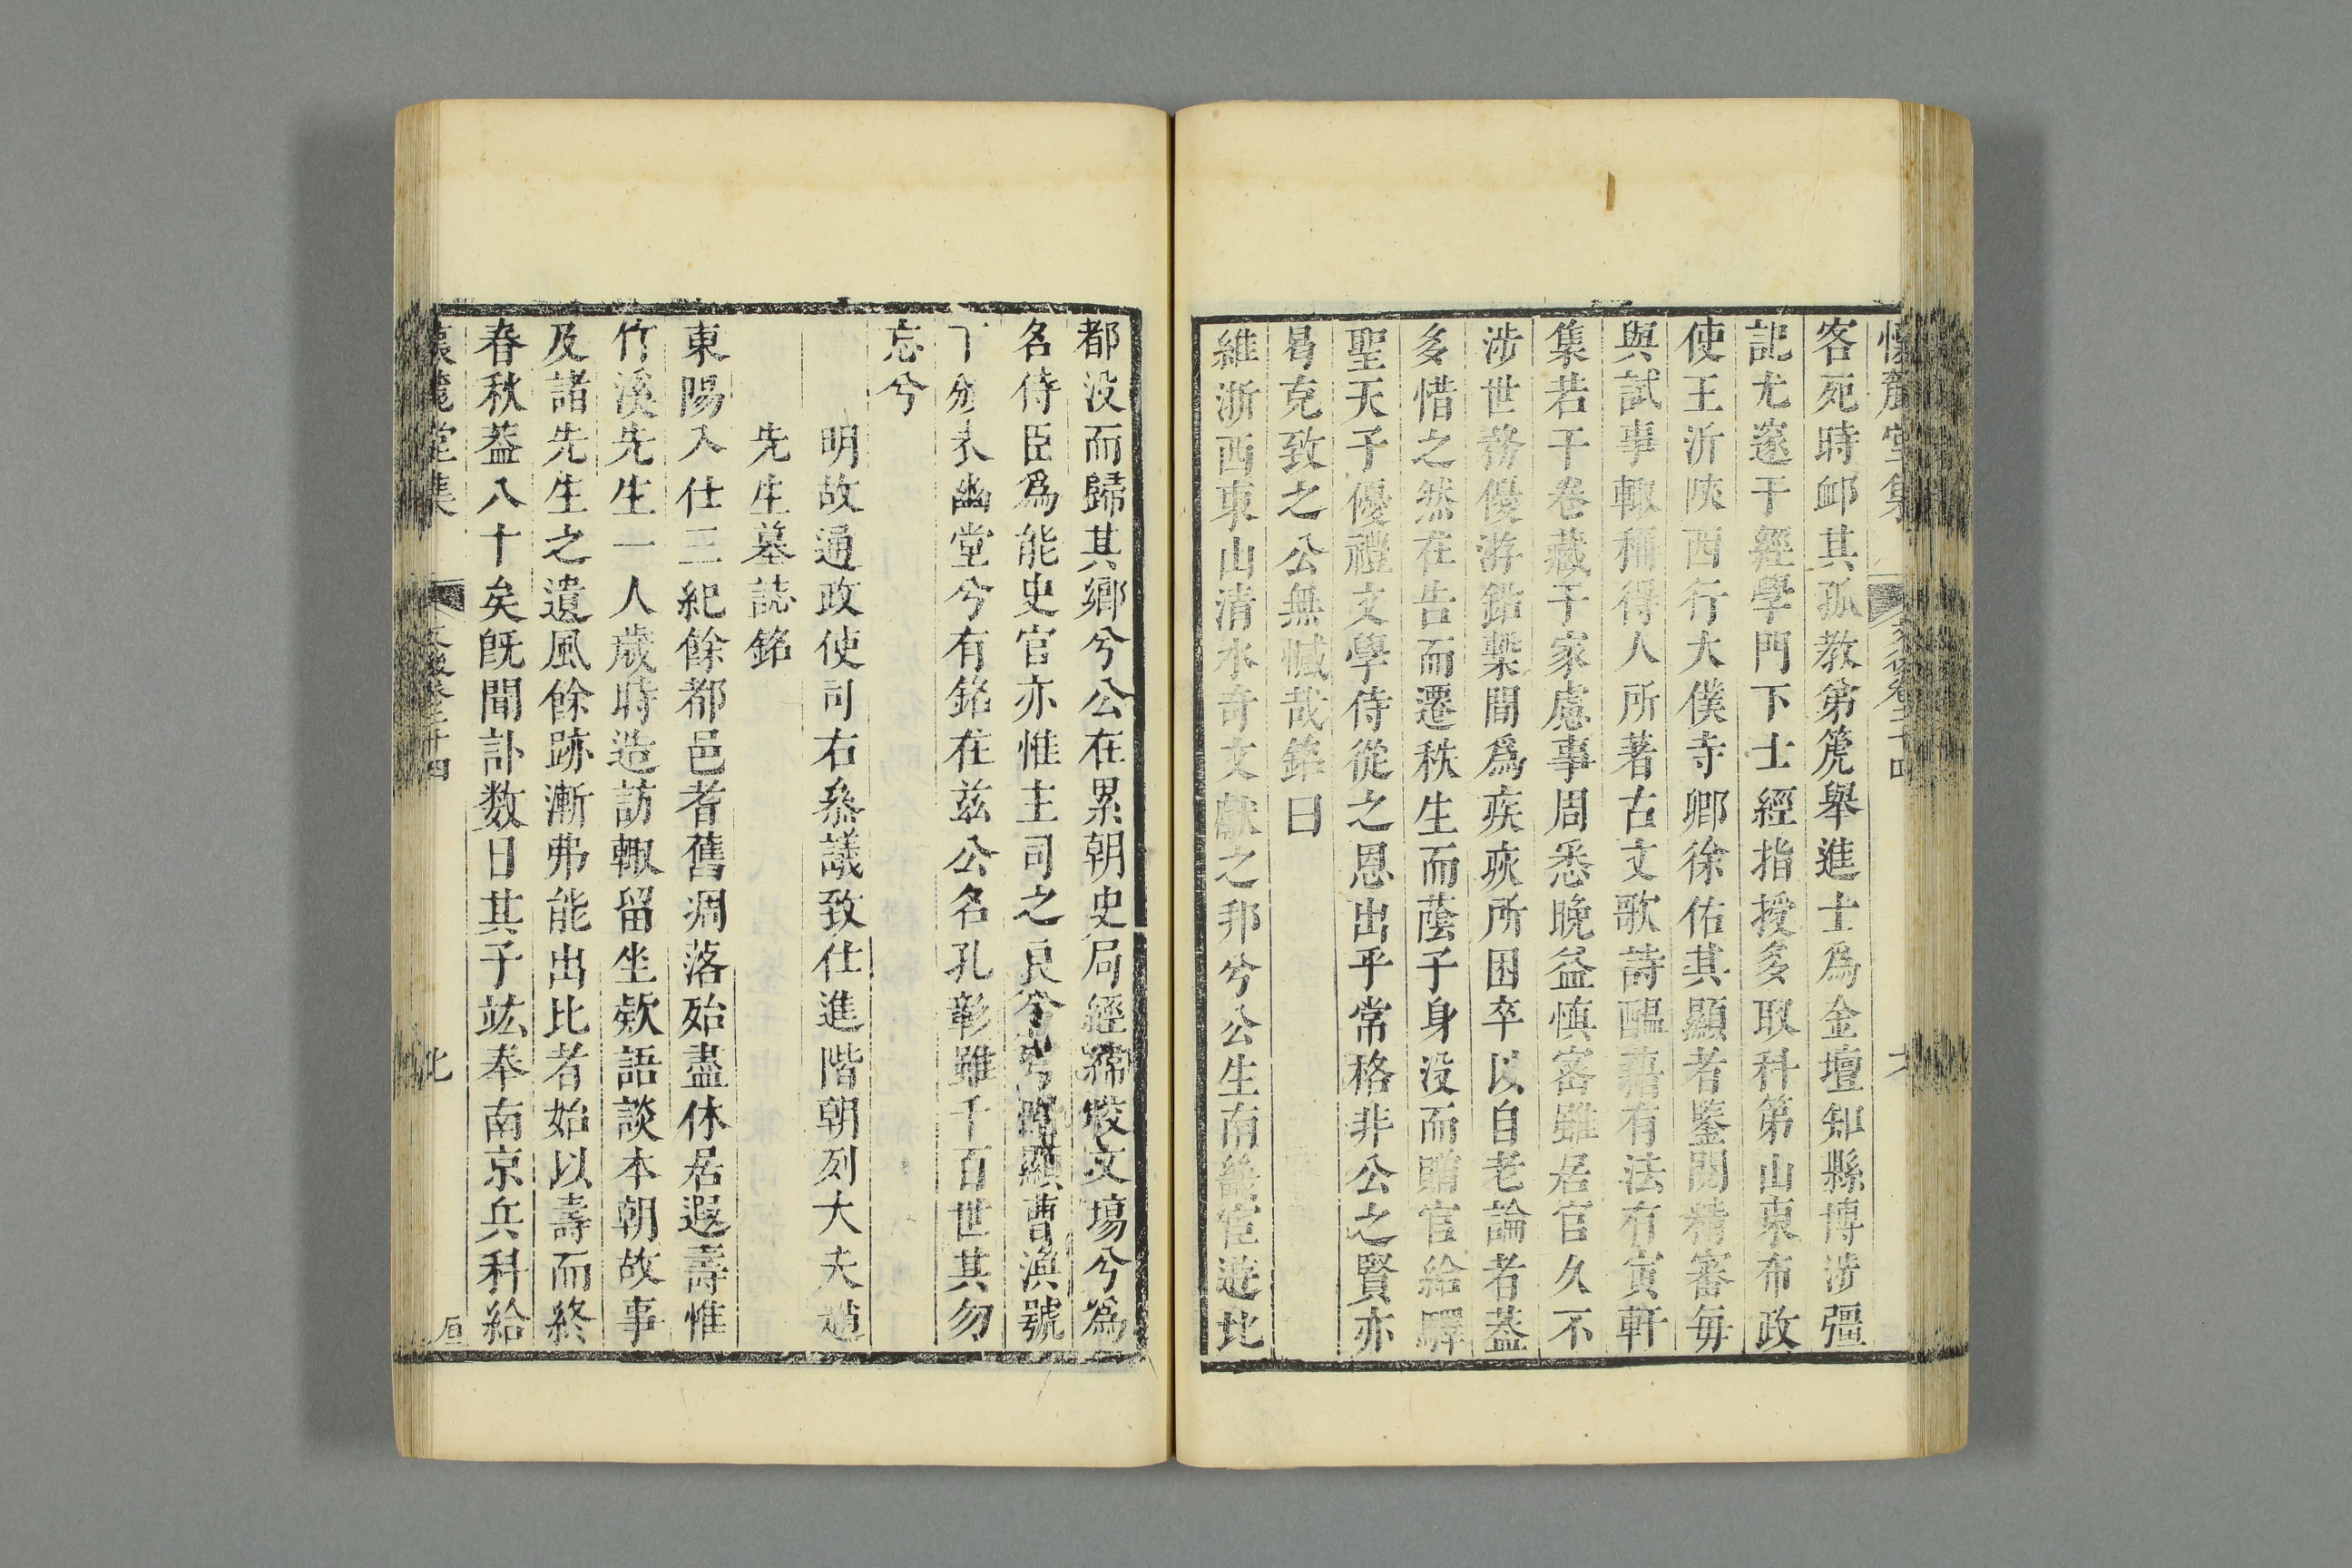 懷麓堂集 文後卷二十四
客死時䘏其孤教弟箎舉進士爲金壇知縣愽涉彊
記尤邃于經學門下士經指授多取科第山東布政
使王沂陜西行大僕寺卿徐佑其顯者鑒閱精審毎
與試事輙稱得人所著古文歌詩醞藉有法有寅軒
集若干卷藏于家慮事周悉晚益慎宻雖居官久不
涉世務優游鉛槧間爲疾疢所困卒以自老論者葢
多惜之然在告而遷秩生而蔭子身没而贈官給驛
聖天子優禮文學侍從之恩出乎常格非公之賢亦
曷克致之公無憾哉銘曰
維浙西東山清水奇文獻之邦兮公生南畿宦遊北
都没而歸其鄉兮公在累朝史局經㡧校文塲兮爲
名侍臣爲能史官亦惟主司之良兮
幽堂兮有銘在兹公名孔彰雖千百世其勿
忘兮
明故通政使司右叅議致仕進階朝列大夫趙
先生墓誌銘
東陽入仕三紀餘都邑耆舊凋落殆盡休居遐壽惟
竹溪先生一人歲時造訪輙留坐欵語談本朝故事
及諸先生之遺風餘跡漸弗能出比者始以壽而終
春秋葢八十矣旣聞訃数日其子竑奉南京兵科給
懷麓堂集 文後卷二十四